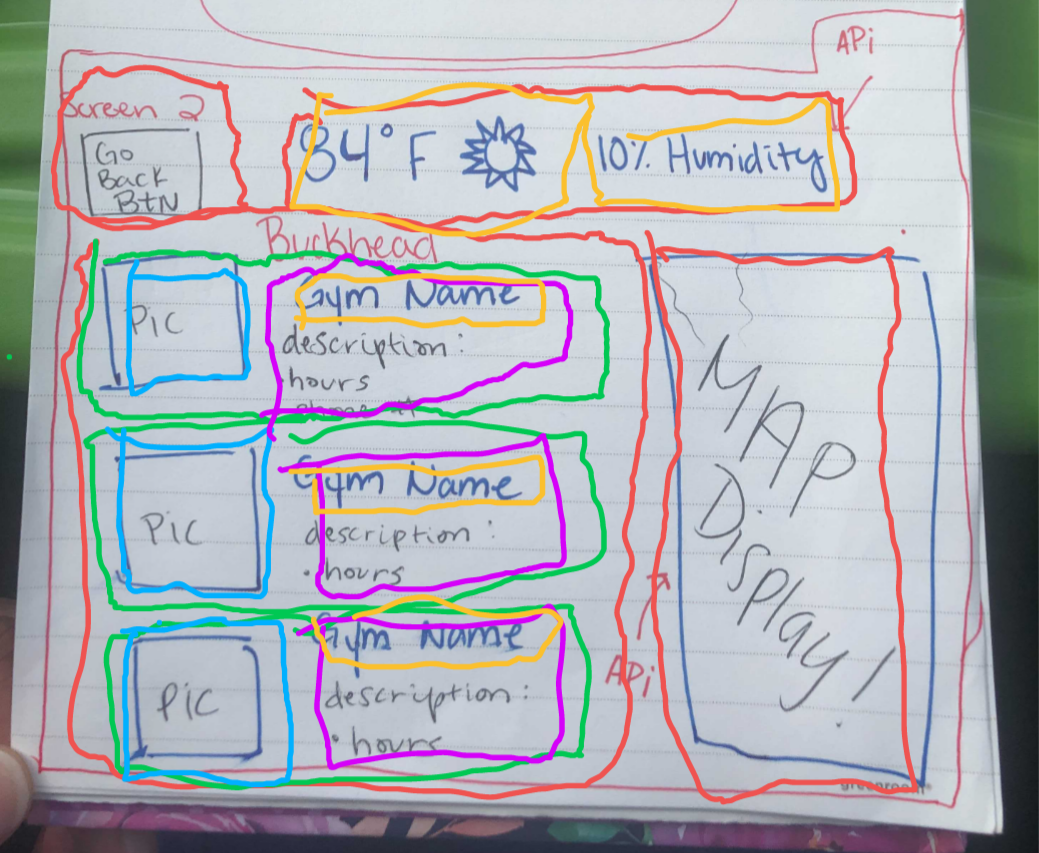 APi
Screen 2
Go
Back
BtN
84° F
10% Humidity
Buckhead
Pic
Gym Name
description:
hours
phone #
Pic
Gym Name
description:
• hours
Pic
Gym Name
description:
• hours
APi
MAP
Display!
greenroom